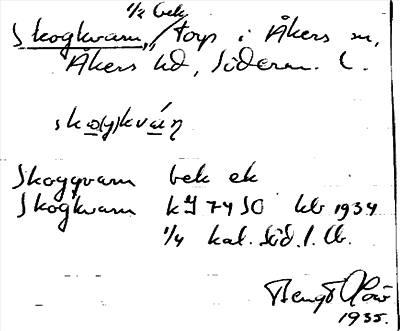 1/2 bek
Skogkvarn, torp i Åkers sn,
Åkers hd, Söderm. l.
sko(g)kvąːn
Skogqvarn bek ek
Skogkvarn kJ 74 SO kb 1934
1/4 kat. Söd. l.
Bengt
1935.